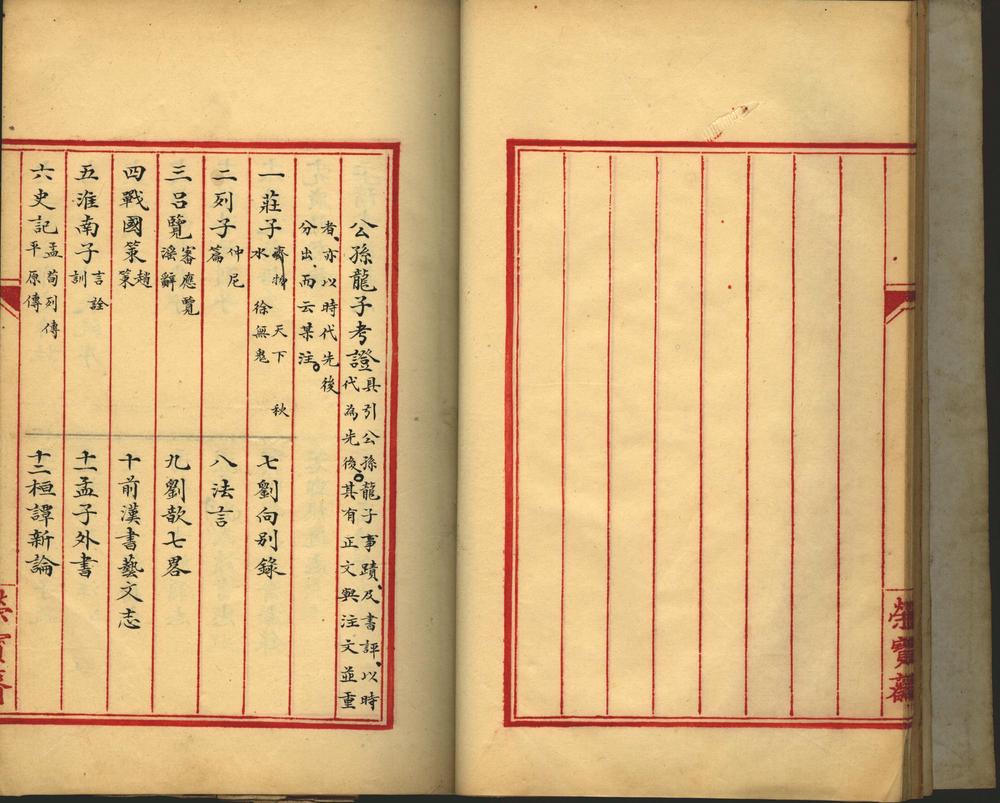 榮寶齋
公孫龍子考證
具引公孫龍子事蹟、及書評、以時
代為先後。其有正文與注文並重
者、亦以時代先後
分出、而云某注。
一莊子
齊物 天下 秋
水 徐無鬼
二列子
仲尼
篇
三呂覽
審應覽
淫辭
四戰國策
趙
策
五淮南子
言詮
訓
六史記
孟荀列傳
平原傳
七劉向別錄
八法言
九劉歆七畧
十前漢書藝文志
十一孟子外書
十二桓譚新論
榮寶齋